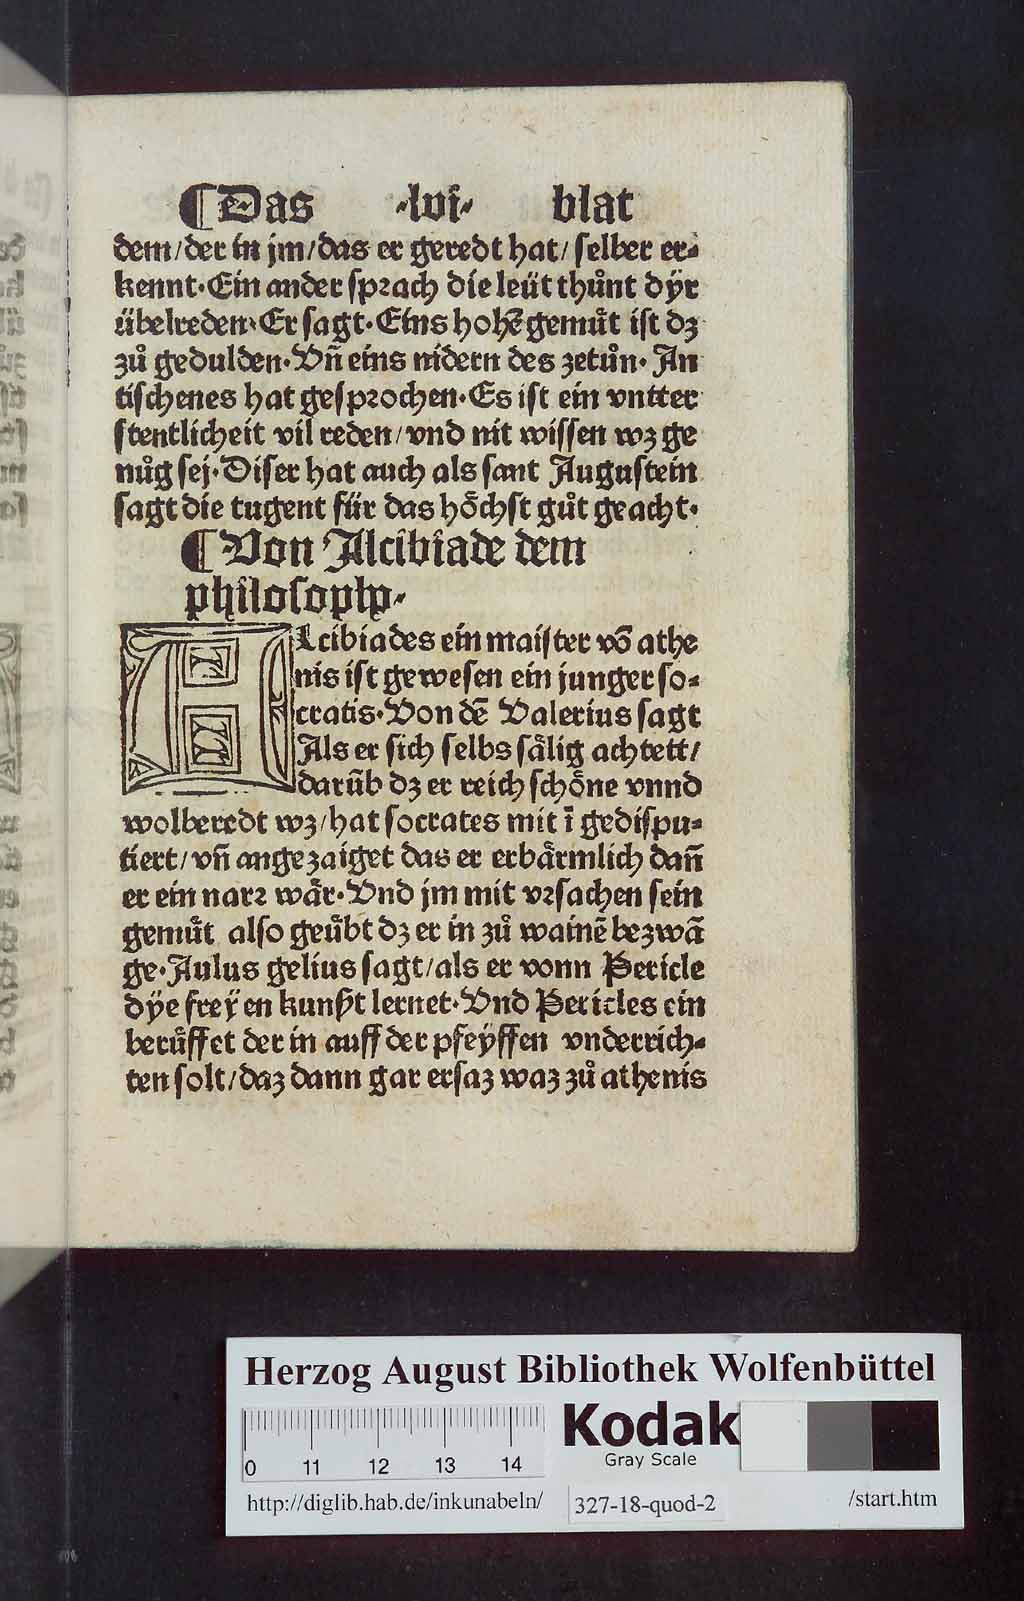 ⸿Das ·lvi· blat
dem/der in jm/das er geredt hat/selber er⸗
kennt·Ein ander sprach die leüt thůnt dÿr
übelreden·Er sagt·Eins hohē gemuͤt ist dz
zů gedulden·Vñ eins nidern des zetůn·An
tischenes hat gesprochen·Es ist ein vntter
stentlicheit vil reden/vnd nit wissen wz ge
nůg sej·Diser hat auch als sant Augustein
sagt die tugent für das hoͤchst gůt geacht·
⸿Von Alcibiade dem
philosophy·
ALcibiades ein maister vō athe
nis ist gewesen ein junger so⸗
cratis·Von dē Valerius sagt
Als er sich selbs saͤlig achtett/
darūb dz er reich schoͤne vnnd
wolberedt wz/hat socrates mit ī gedispu⸗
tiert/vñ angezaiget das er erbaͤrmlich dañ
er ein narr waͤr·Vnd jm mit vrsachen sein
gemuͤt also geuͤbt dz er in zů wainē bezwā
ge·Aulus gelius sagt/als er vonn Pericle
dÿe freÿen kunst lernet·Vnd Pericles ein
beruͤffet der in auff der pfeÿffen vnderrich⸗
ten solt/daz dann gar ersaz waz zů athenis
Herzog August Bibliothek Wolfenbüttel
0 11 12 13 14
Kodak
Gray Scale
http://diglib.hab.de/inkunabeln/ 327-18-quod-2 /start.htm